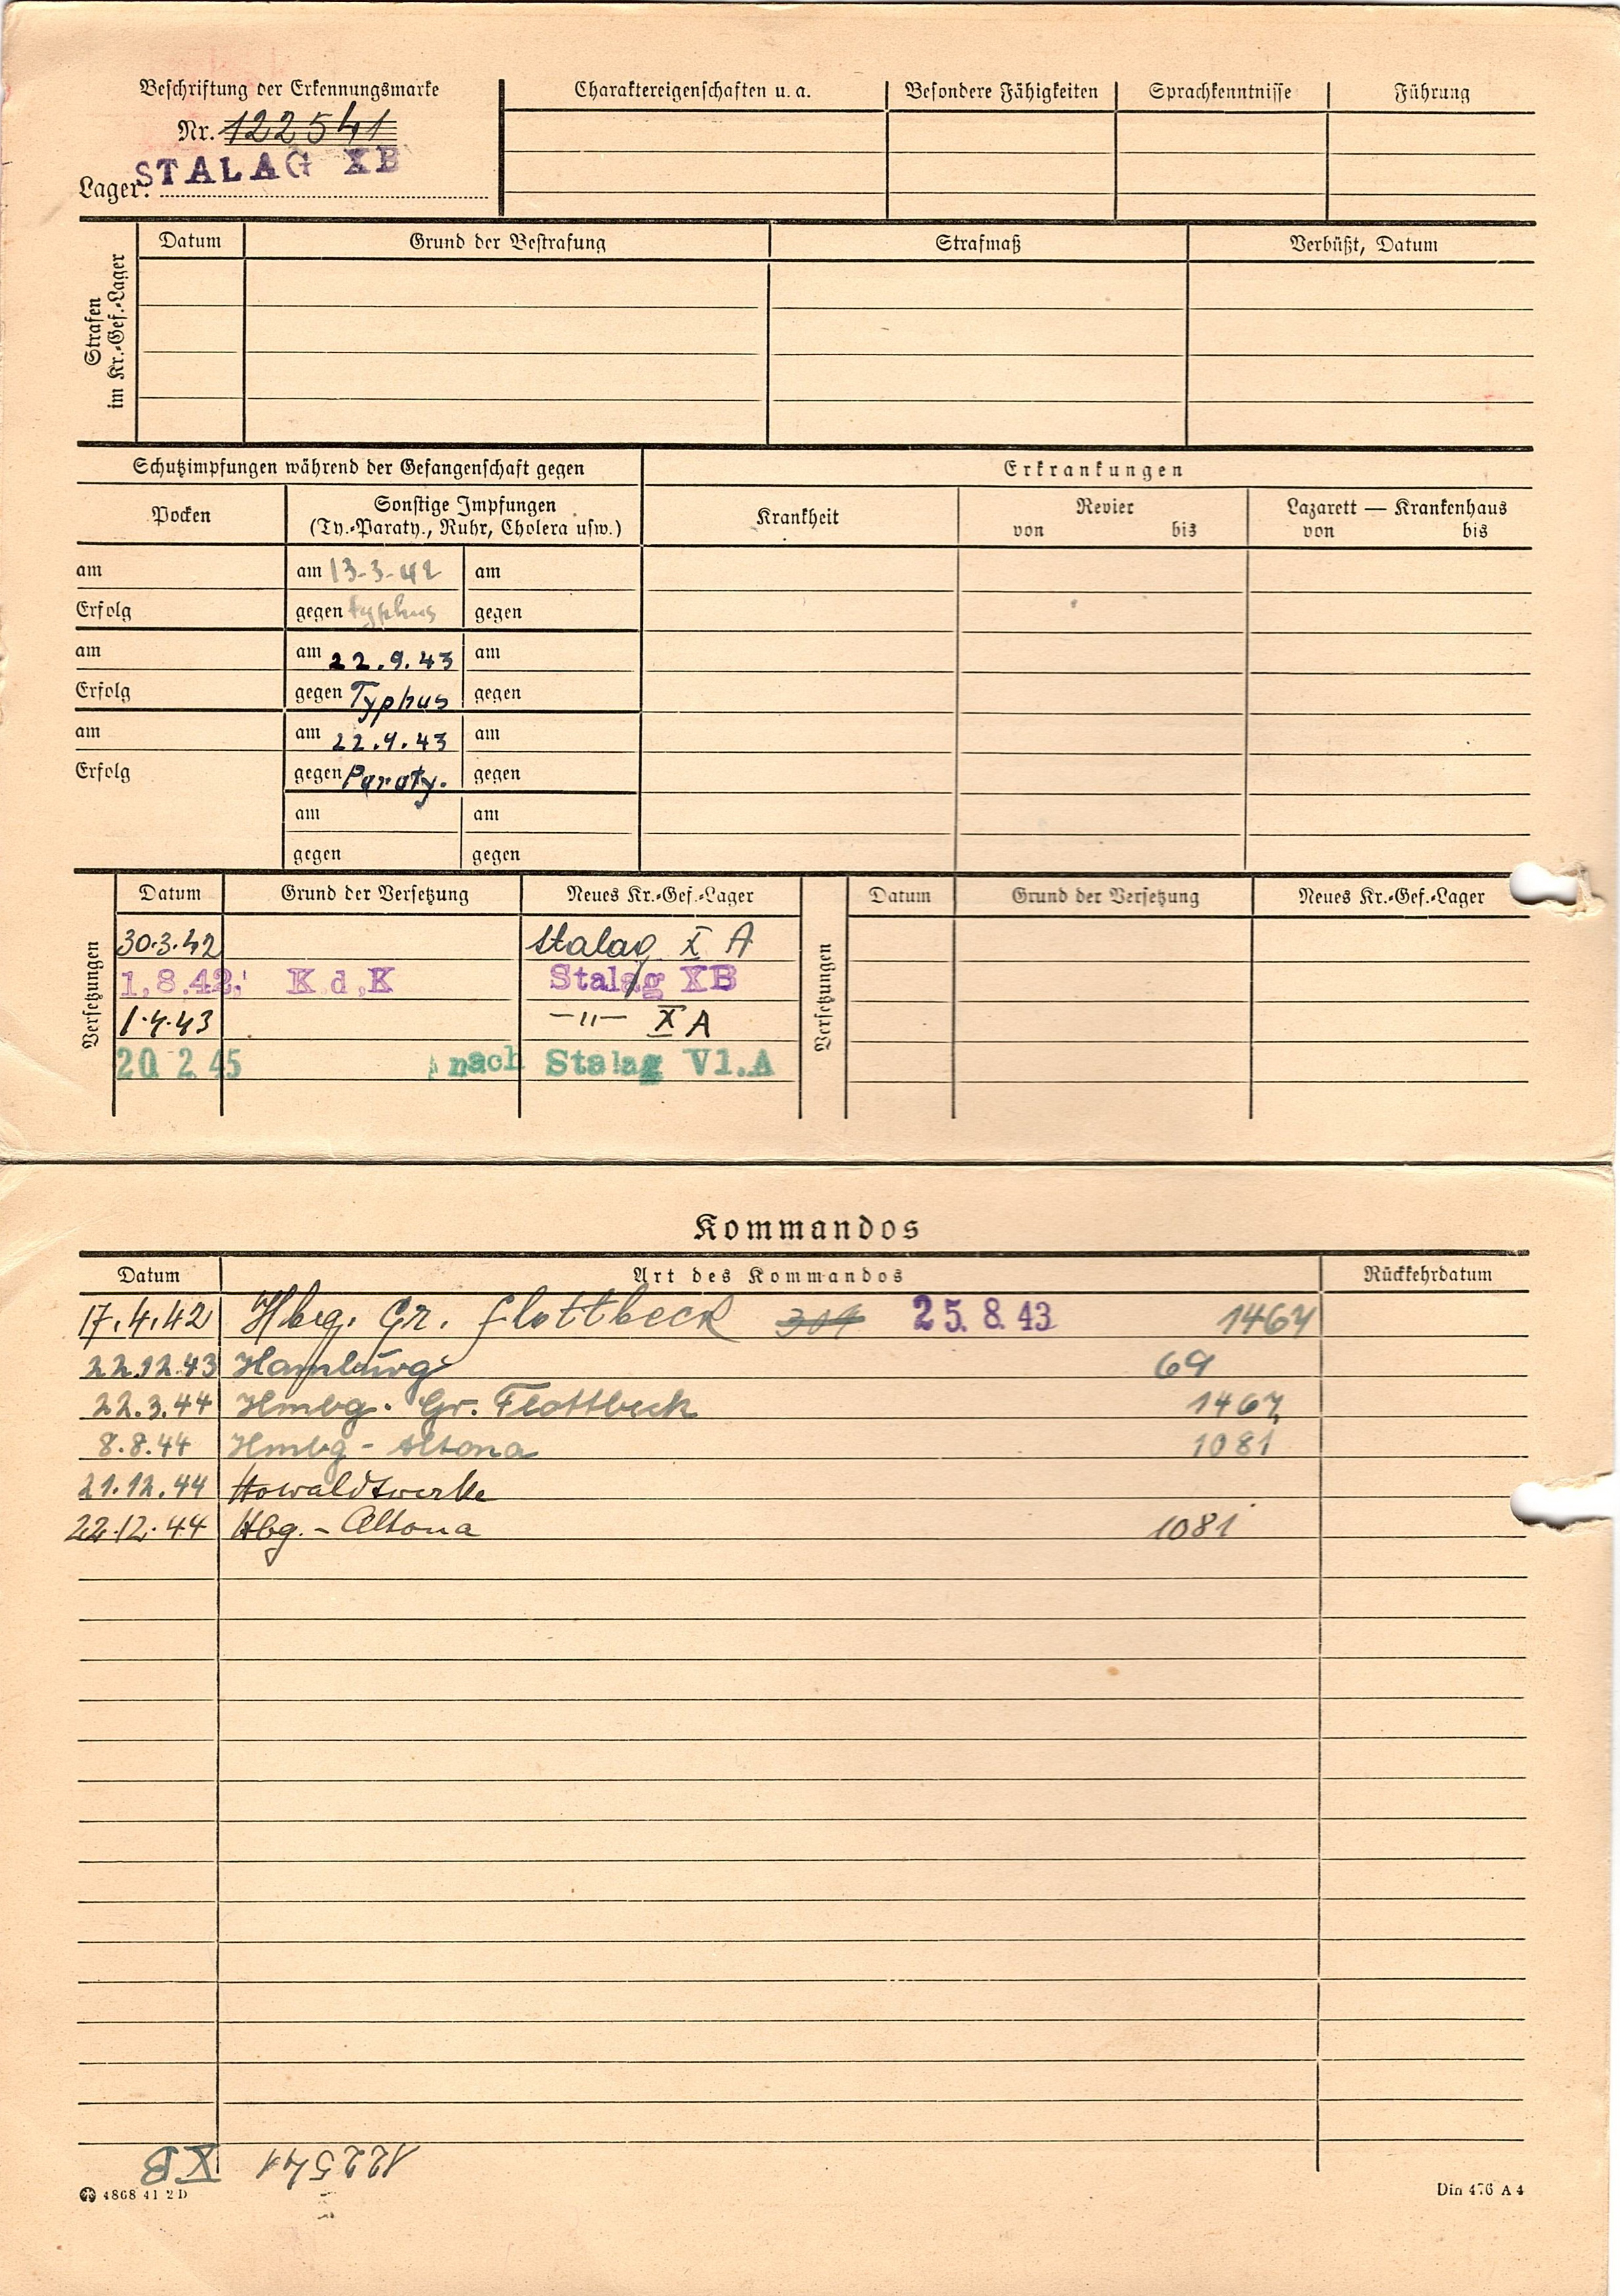 Beschriftung der Erkennungsmarke
Nr. 122541
Lager: STALAG XB
Charaktereigenschaften u. a. Besondere Fähigkeiten Sprachkenntnisse Führung
Strafen im Kr.-Gef.-Lager
Datum Grund der Bestrafung Strafmaß Verbüßt, Datum
Schutzimpfungen während der Gefangenschaft gegen
Erkrankungen
Pocken
Sonstige Impfungen
(Ty.-Paraty., Ruhr, Cholera usw.)
Krankheit
Revier
von bis
Lazarett — Krankenhaus
von bis
am am 13-3-42 am
Erfolg gegen typhus gegen
am am 22.9.43 am
Erfolg gegen Typhus gegen
am am 22.9.43 am
Erfolg gegen Paraty. gegen
am am
gegen gegen
Versetzungen
Datum Grund der Versetzung Neues Kr.-Gef.-Lager
30.3.42 Stalag X A
1.8.42. K.d.K Stalag XB
1.4.43 —"— X A
20 2 45 nach Stalag VI.A
Versetzungen
Datum Grund der Versetzung Neues Kr.-Gef.-Lager
Kommandos
Datum Art des Kommandos Rückkehrdatum
17.4.42 Hbrg. Gr. Flottbeck 25. 8. 43 1467
22.12.43 Hamburg 69
22.3.44 Hmbg. Gr. Flottbeck 1467
8.8.44 Hmbg - Altona 1081
21.12.44 Howaldtwerke
22.12.44 Hbg. - Altona 1081
122541 XB
4868 41 2 D
Din 476 A 4